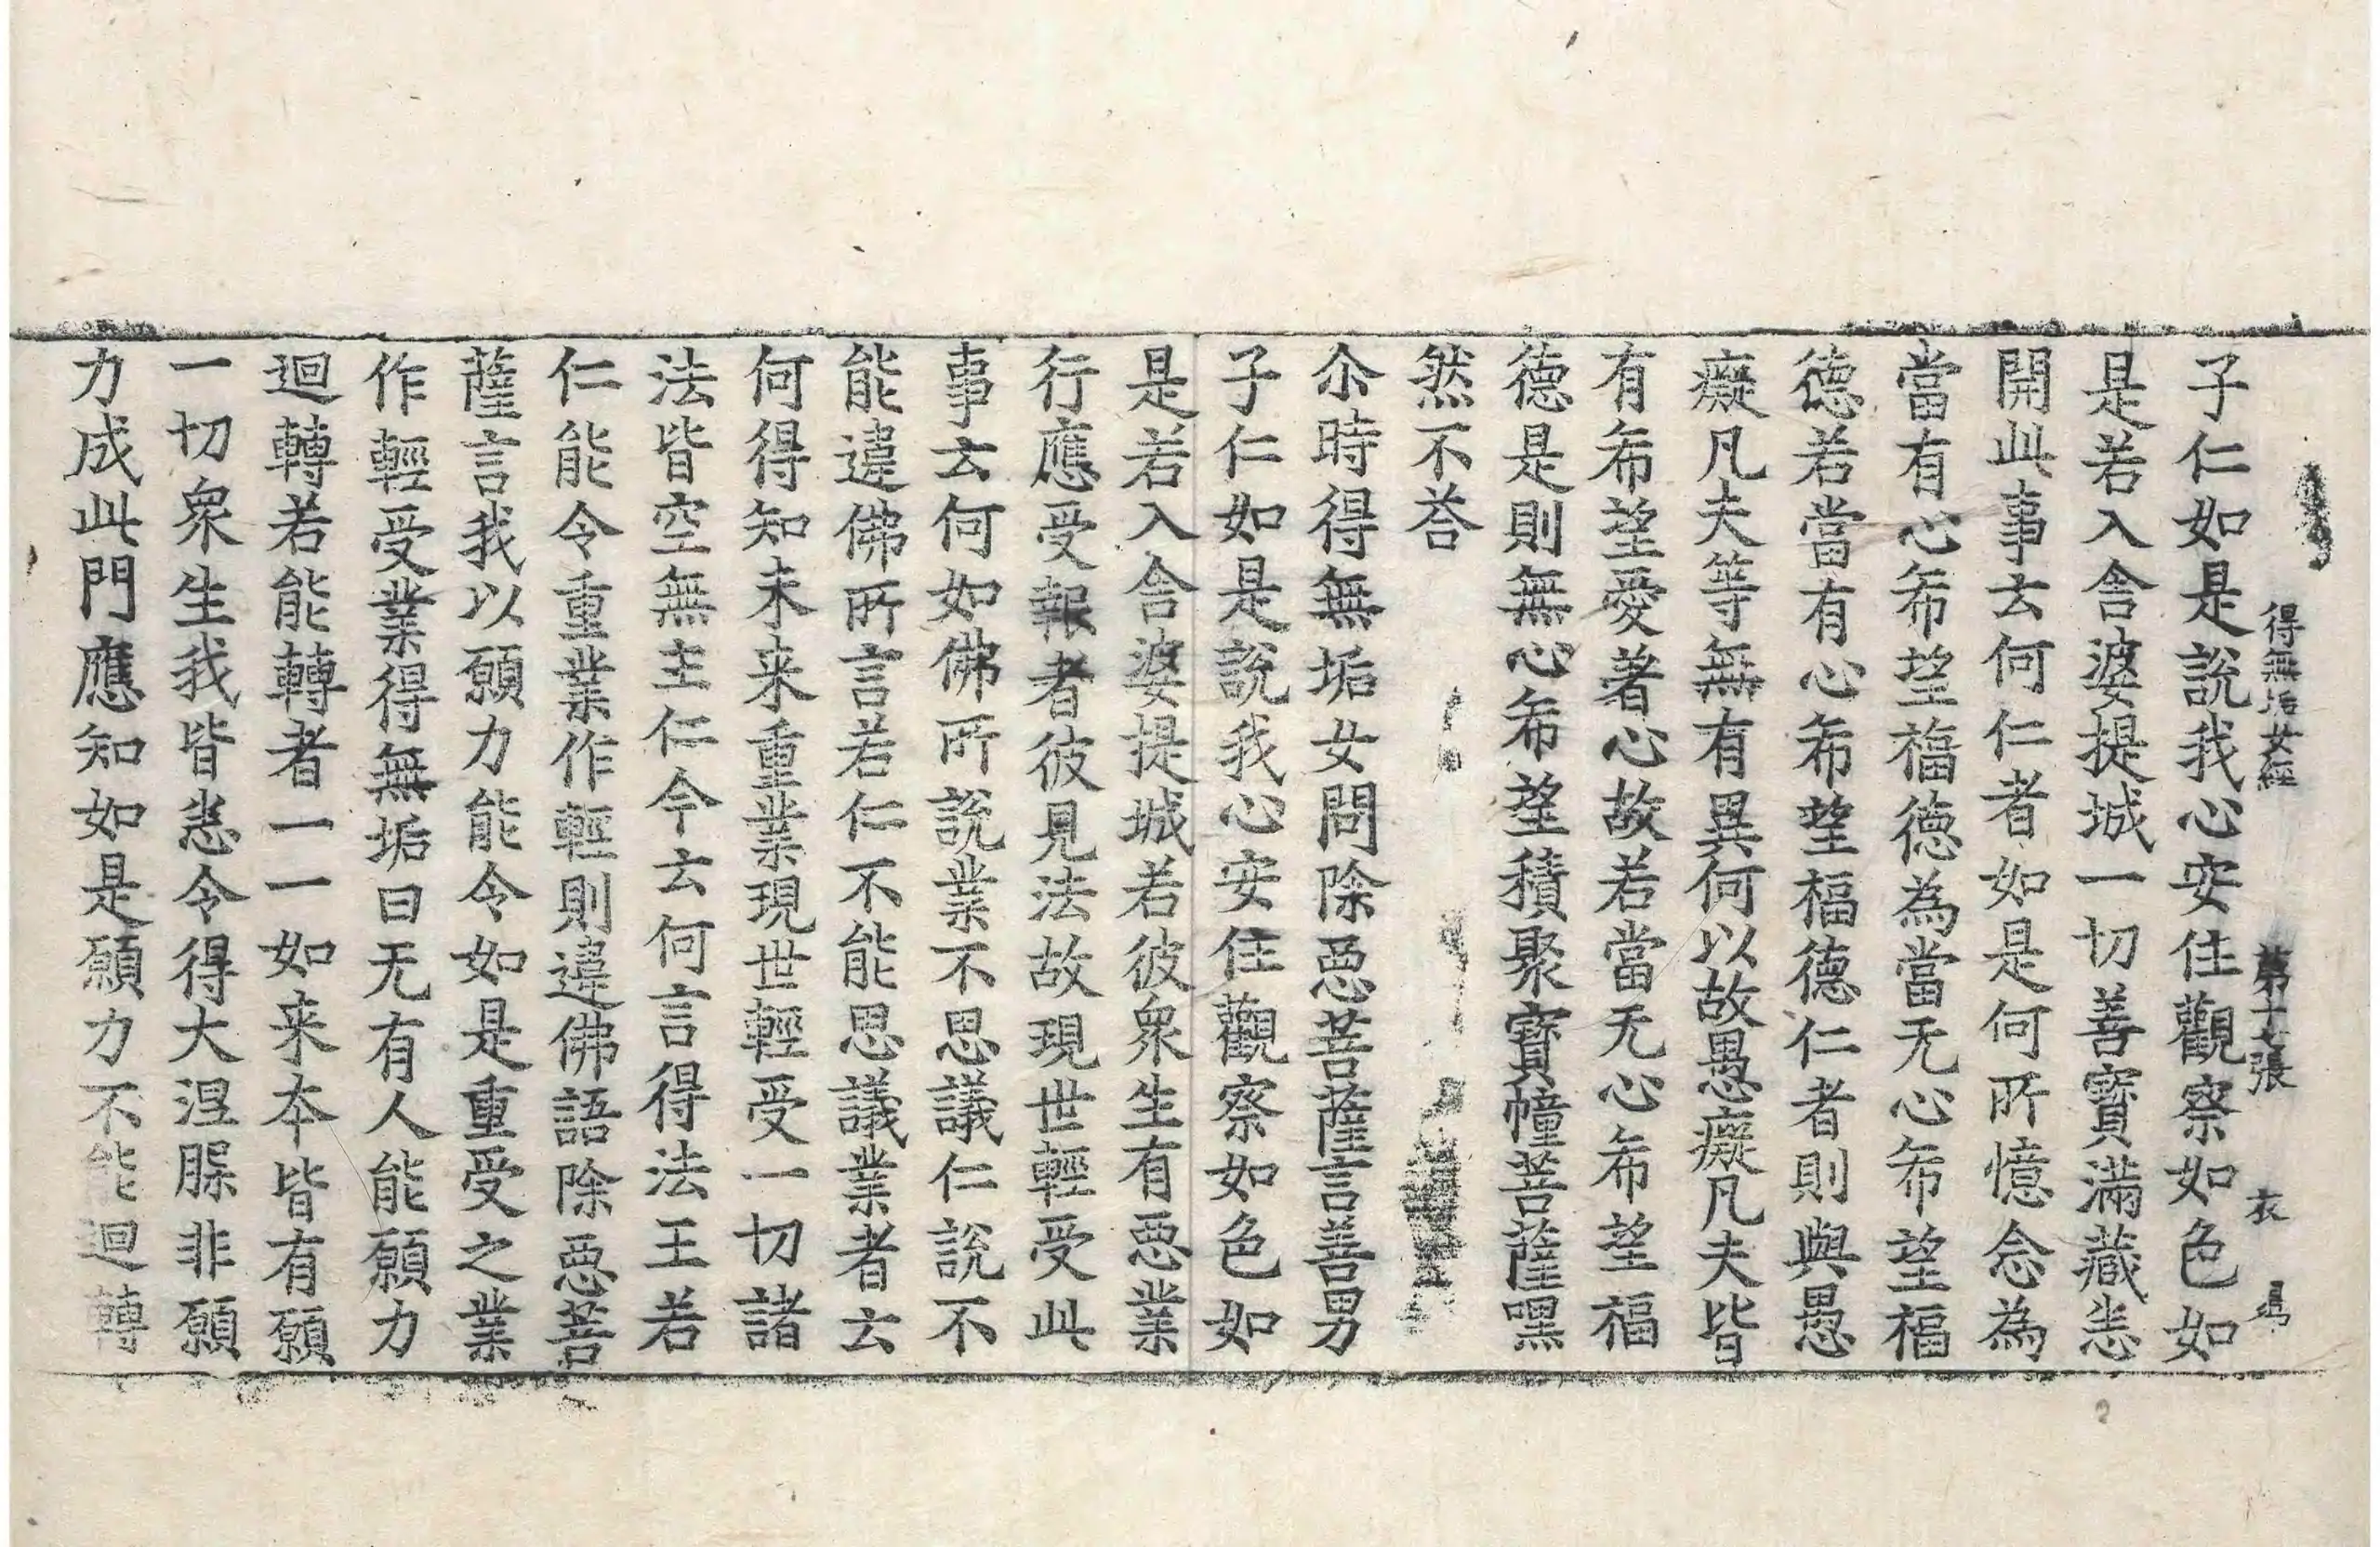 得無垢女經　第十七張　衣
子仁如是說我心安住觀察如色如
是若入舎婆提城一切善寳滿藏恚
開此事去何仁者如是何所憶念為
當有心希望福德為當无心希望福
德若當有心希望福德仁者則與愚
癡凡夫等無有異何以故愚癡凡夫皆
有希望愛著心故若當无心希望福
德是則無心希望積聚寳幢菩薩嘿
然不荅
尒時得無垢女問除惡菩薩言善男
子仁如是說我心安住觀察如色如
是若入舎婆提城若彼衆生有惡業
行應受報者彼見法故現世輕受此
事去何如佛所說業不思議仁說不
能違佛所言若仁不能思議業者去
何得知未来重業現世輕受一切諸
法皆空無主仁今去何言得法王若
仁能令重業作輕則違佛語除惡菩
薩言我以願力能令如是重受之業
作輕受業得無垢曰无有人能願力
迴轉若能轉者一一如来本皆有願
一切衆生我皆恚令得大涅脲非願
力成此門應知如是願力不能迴轉